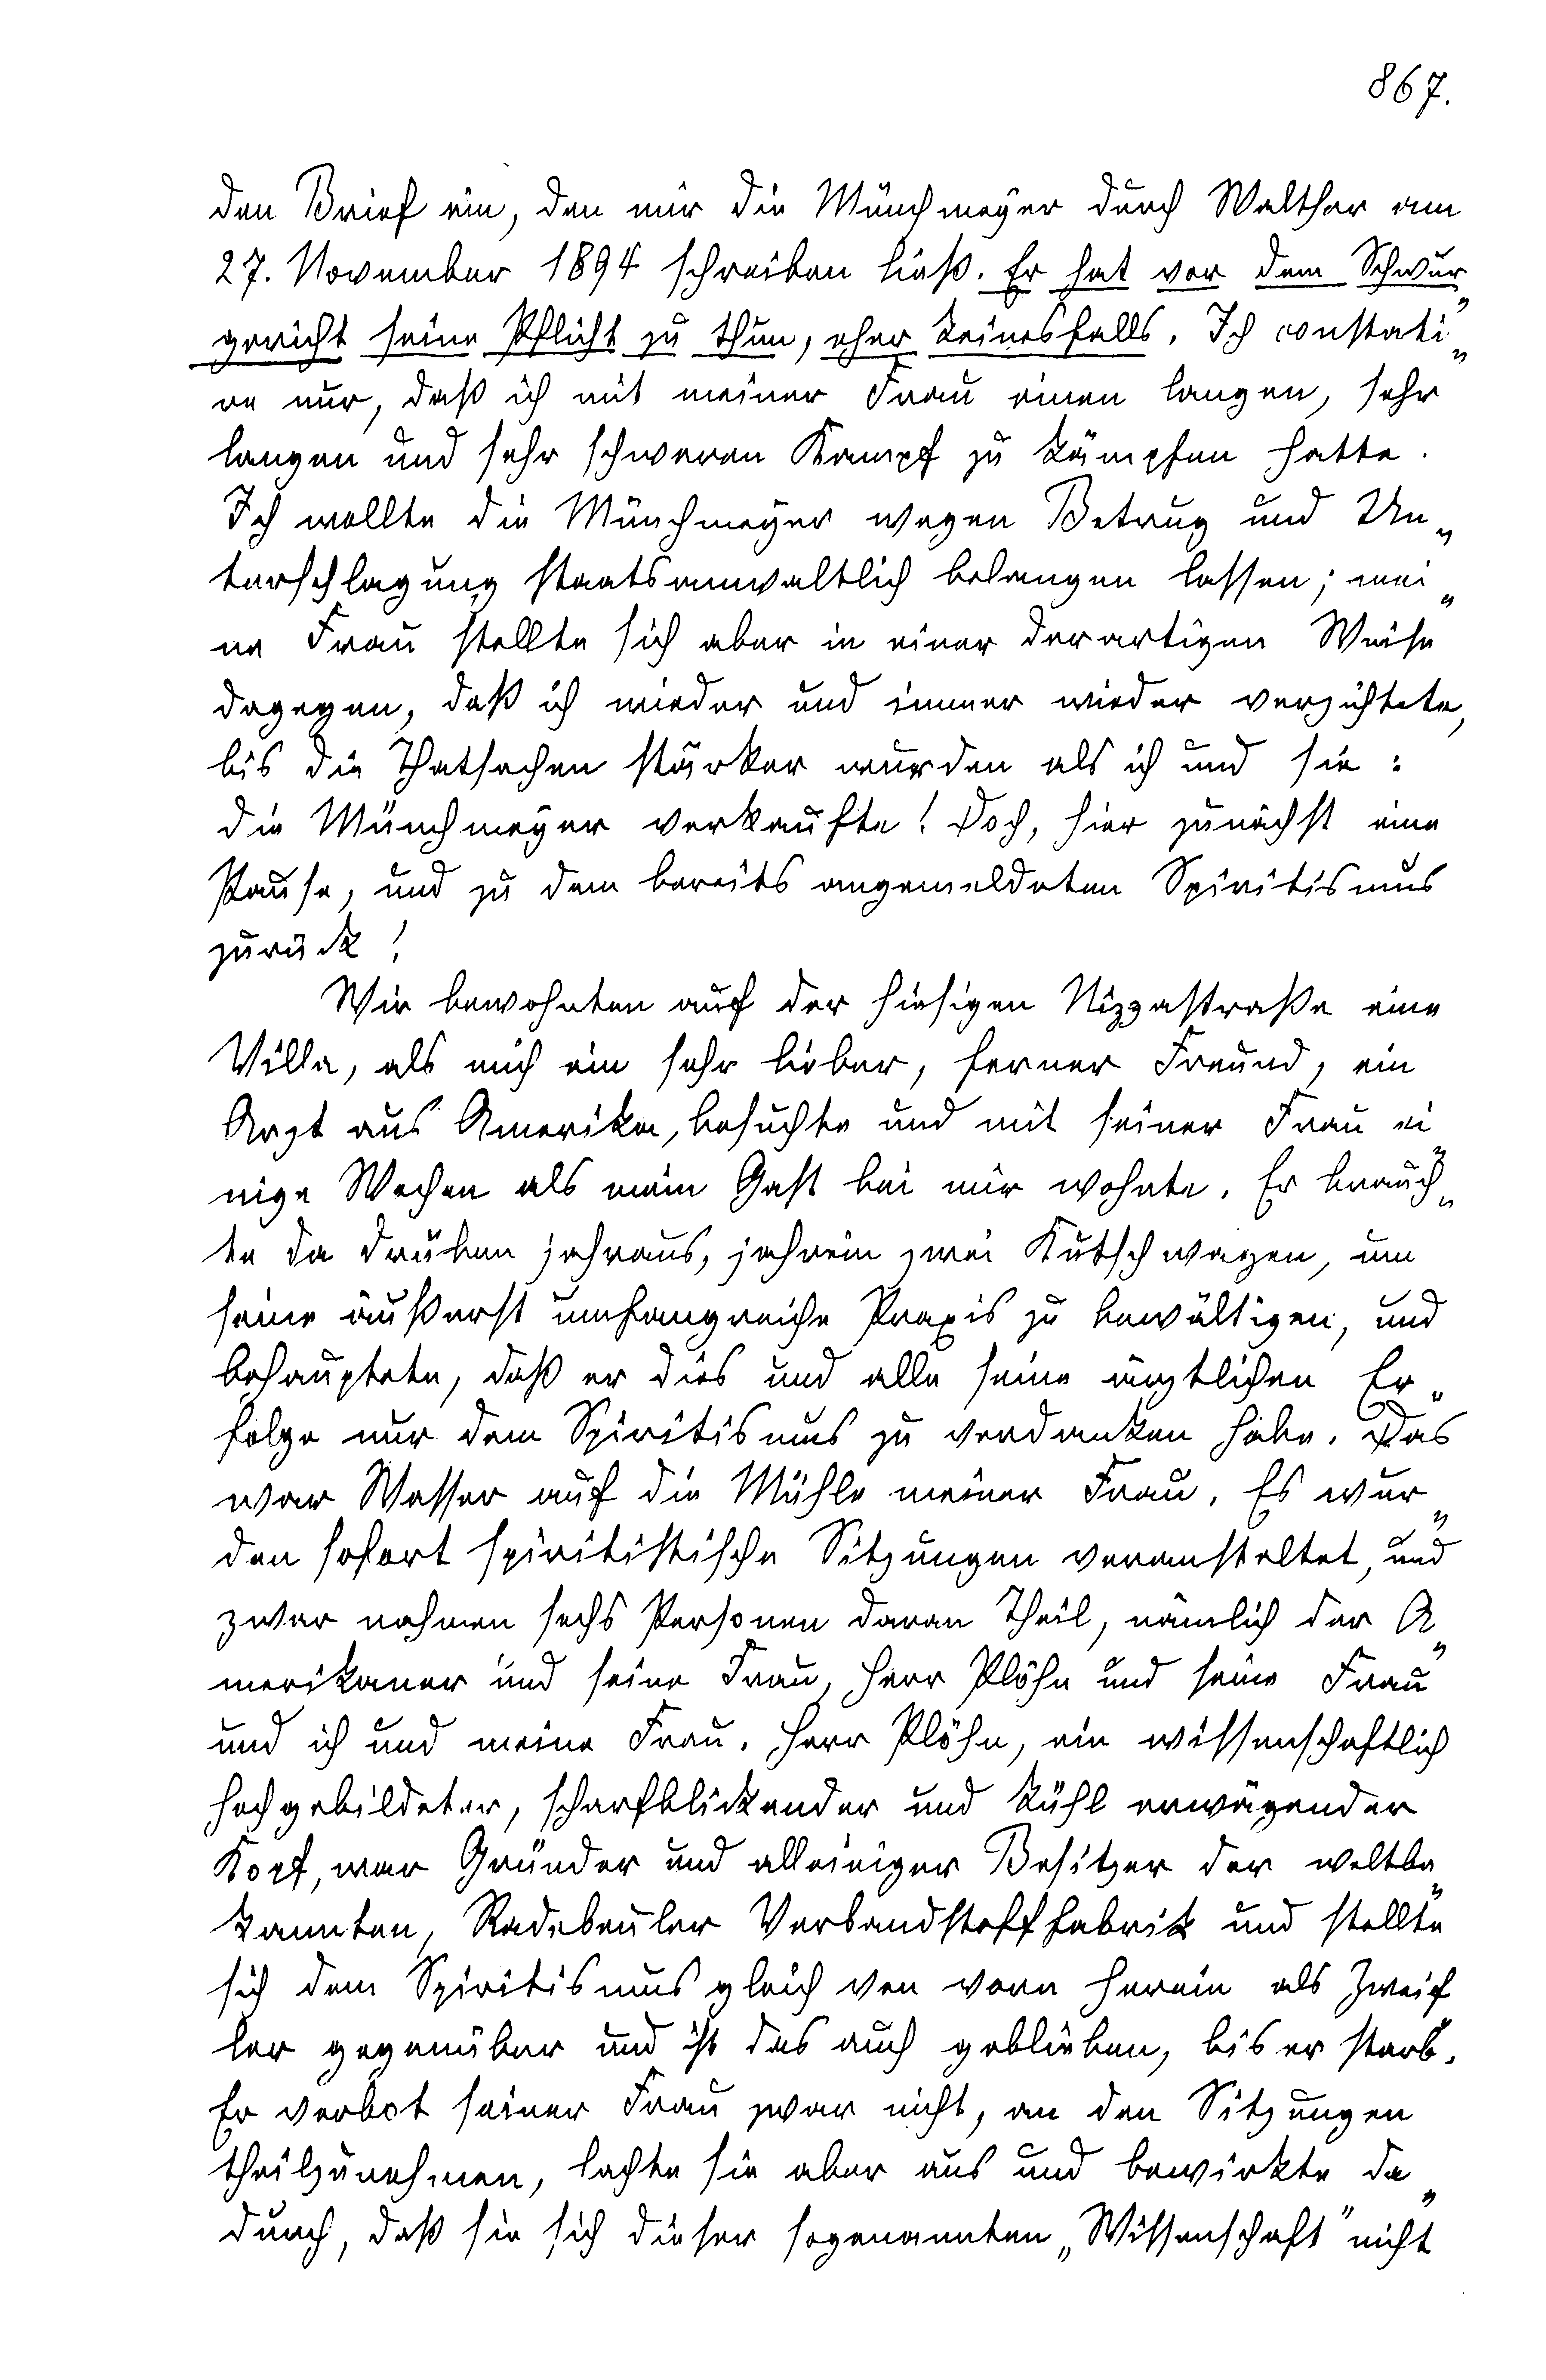 867.
den Brief ein, den mir die Münchmeyer durch Walther am
27. November 1894 schreiben ließ. Er hat vor dem Schwur„
gericht seine Pflicht zu thun, eher keinesfalls. Ich constati„
re nur, daß ich mit meiner Frau einen langen, sehr
langen und sehr schweren Kampf zu kämpfen hatte.
Ich wollte die Münchmeyer wegen Betrug und Un„
terschlagung staatsanwaltlich belangen lassen; mei„
ne Frau stellte sich aber in einer derartigen Weise
dagegen, daß ich wieder und immer wieder verzichtete,
bis die Thatsachen stärker wurden als ich und sie:
die Münchmeyer verkaufte! Doch, hier zunächst eine
Pause, und zu dem bereits angemeldeten Spiritismus
zurück!
Wir bewohnten auf der hiesigen Nizzastraße eine
Villa, als mich ein sehr lieber, ferner Freund, ein
Arzt aus Amerika, besuchte und mit seiner Frau ei„
nige Wochen als mein Gast bei mir wohnte. Er brauch„
te da drüben jahraus, jahrein zwei Kutschwagen, um
seine äußerst umfangreiche Praxis zu bewältigen, und
behauptete, daß er dies und alle seine ärztlichen Er„
folge nur dem Spiritismus zu verdanken habe. Das
war Wasser auf die Mühle meiner Frau. Es wur„
den sofort spiritistische Sitzungen veranstaltet, und
zwar nahmen sechs Personen daran Theil, nämlich der A„
merikaner und seine Frau, Herr Plöhn und seine Frau
und ich und meine Frau. Herr Plöhn, ein wissenschaftlich
hochgebildeter, scharfblickender und kühl erwägender
Kopf, war Gründer und alleiniger Besitzer der weltbe„
kannten, Radebeuler Verbandstofffabrik und stellte
sich dem Spiritismus gleich von vorn herein als Zweif„
ler gegenüber und ist das auch geblieben, bis er starb.
Er verbot seiner Frau zwar nicht, an den Sitzungen
theilzunehmen, lachte sie aber aus und bewirkte da„
durch, daß sie sich dieser sogenannten „Wissenschaft" nicht